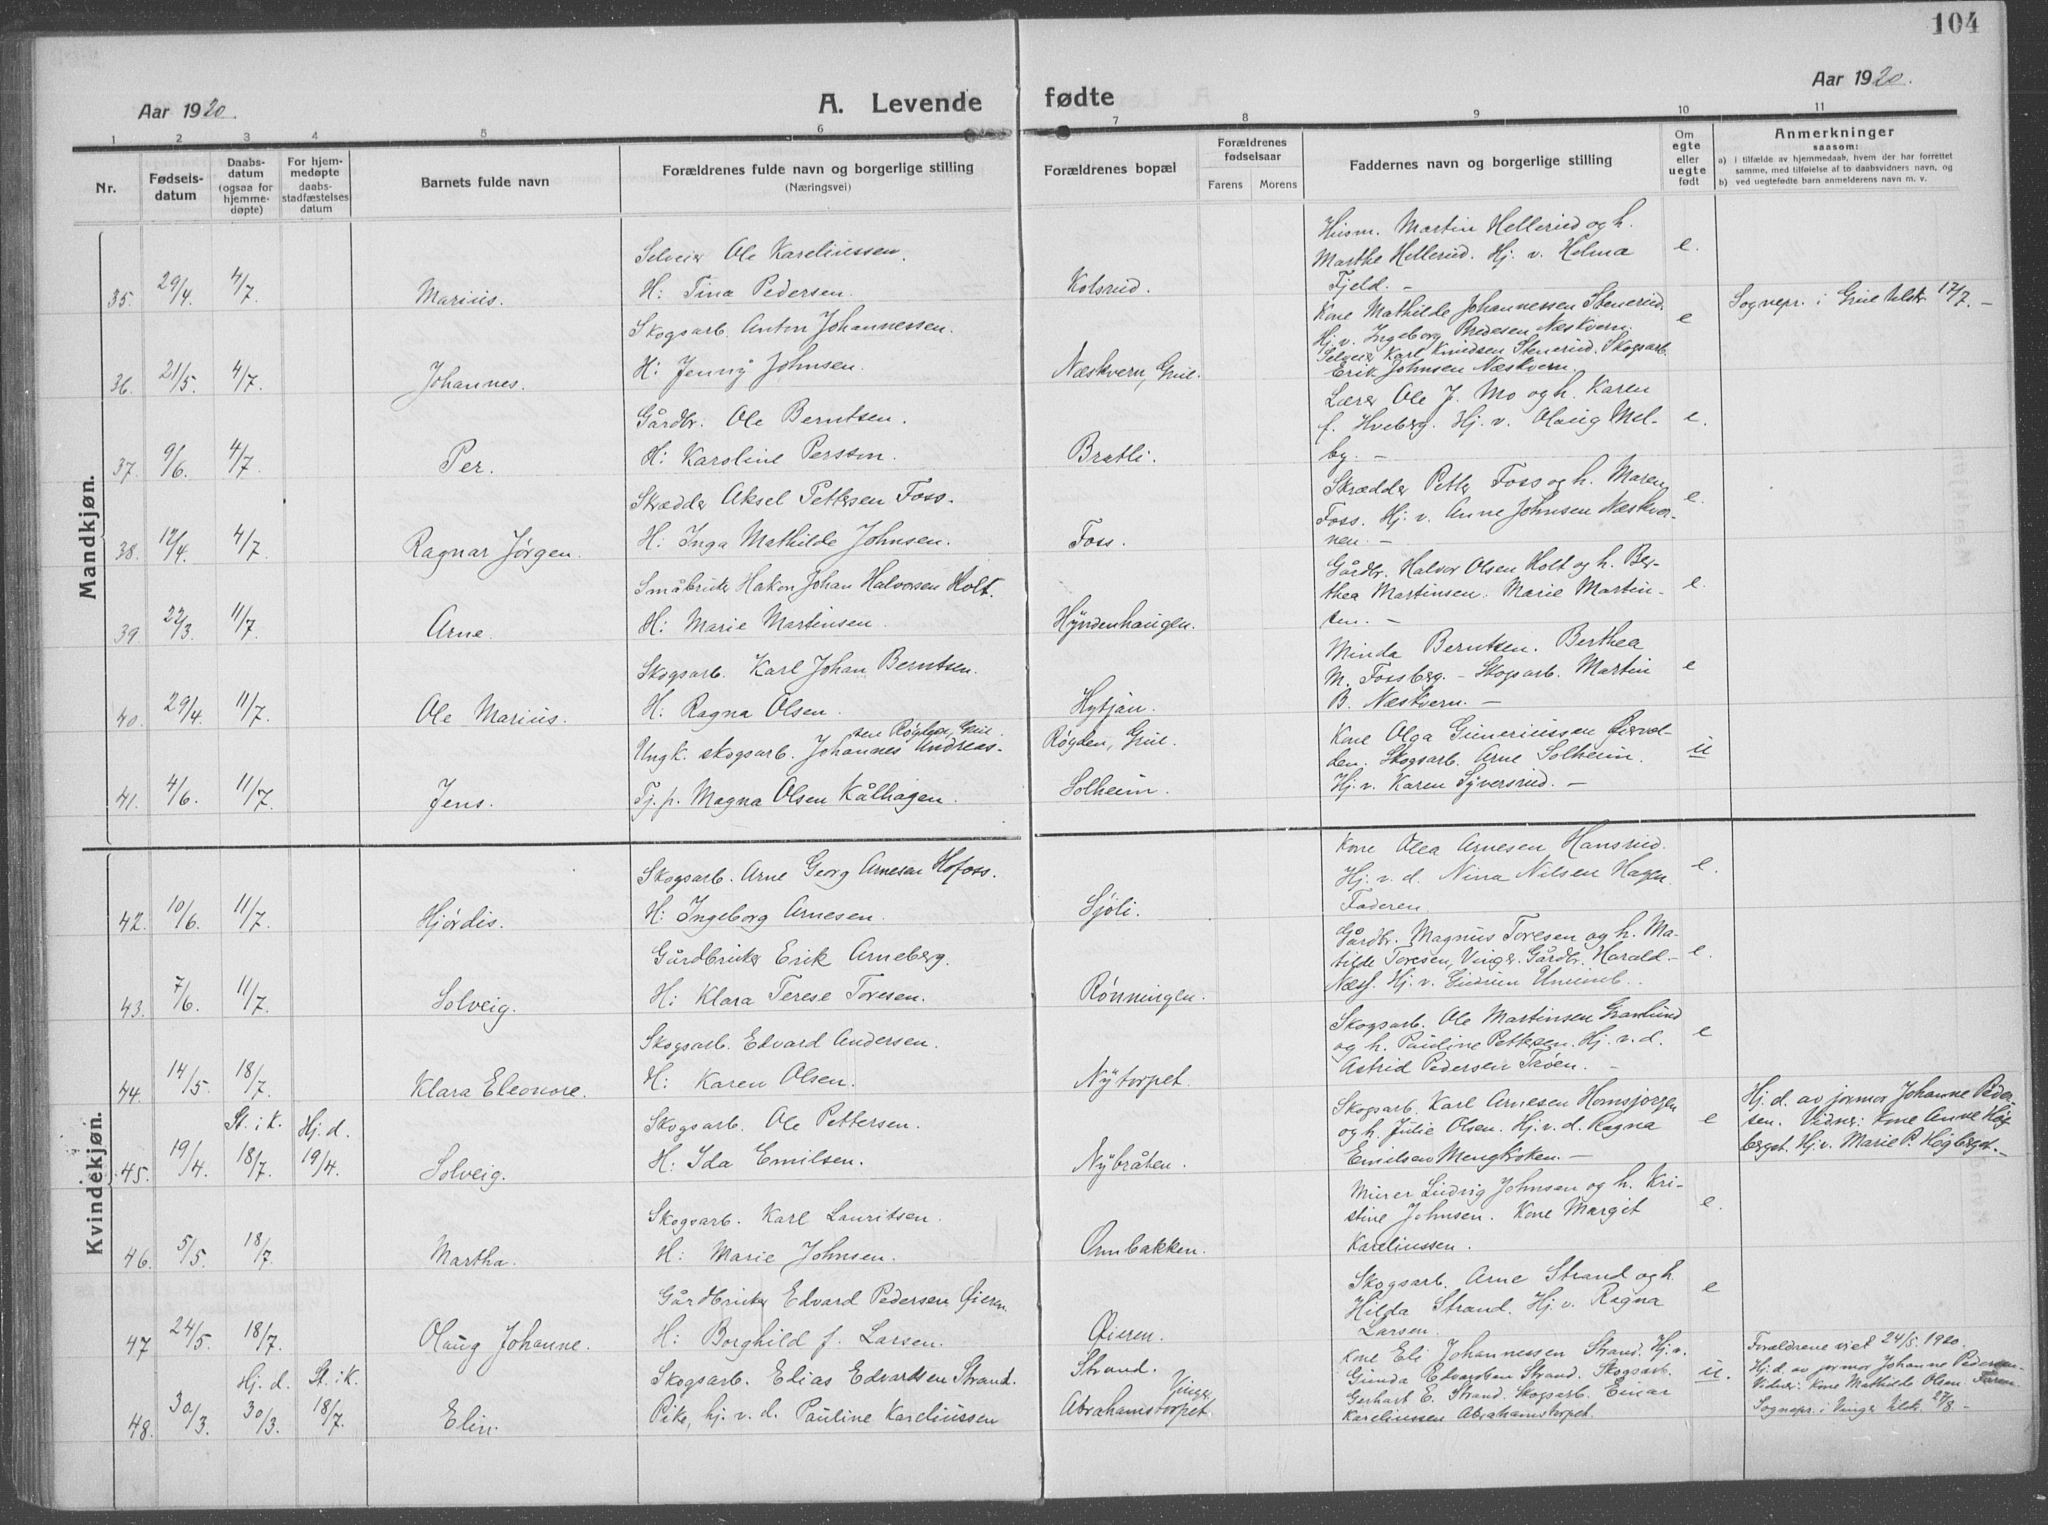 104
Aar 1920. A. Levende fødte Aar 1920.
1 2 3 4 5 6 7 8 9 10 11
Nr.
Fødsels-
datum
Daabs-
datum
(ogsaa for
hjemme-
døpte)
For hjem-
medøpte
daabs-
stadfæstelses
datum
Barnets fulde navn
Forældrenes fulde navn og borgerlige stilling
(Næringsvei)
Forældrenes bopæl
Forældrenes
fødselsaar
Farens Morens
Faddernes navn og borgerlige stilling
Om
egte
eller
uegte
født
Anmerkninger
saasom:
a) i tilfælde av hjemmedaab, hvem der har forrettet
samme, med tilføielse af to daabsvidners navn, og
b) ved uegtefødte barn anmelderens navn m. v.
Mandkjøn.
35. 29/4. 4/7. Marius.
Selveier Ole Kareliussen.
H: Tina Pedersen.
Kolsrud.
Husm. Martin Hellerud og h.
Marthe Hellerud. Hj. v. Helma
Fjeld. —
e.
Sognepr. i Grue tilstr. 17/7. —
36. 21/5 4/7. Johannes.
Skogsarb. Anton Johannessen.
H: Jenny Johnsen.
Næskvern, Grue.
Kone Mathilde Johannessen Stenerud.
Hj. v. Ingeborg Andresen Næskvern.
Selveier Karl Knudsen Stenerud. Skogsarb.
Erik Johnsen Næskvern.
e
37. 9/6. 4/7. Per.
Gårdbr. Ole Berntsen.
H: Karoline Persson.
Bratli.
Lærer Ole J. Mo og h. Karen
f. Hveberg. Hj. v. Olaug Mel-
by. —
e.
38. 12/4. 4/7. Ragnar Jørgen.
Skrædder Aksel Pettersen Foss.
H: Inga Mathilde Johnsen.
Foss.
Skrædder Petter Foss og h. Maren
Foss. Hj. v. Anne Johnsen Næskver-
nen. —
e.
39 22/3. 11/7. Arne.
Småbruker Hakon Johan Halvorsen Holt.
H: Marie Martinsen.
Hyndenhaugen.
Gårdbr. Halvor Olsen Holt og h. Ber-
thea Martinsen. Marie Martin-
sen. —
e.
40. 29/4. 11/7. Ole Marius.
Skogsarb. Karl Johan Berntsen.
H: Ragna Olsen.
Hytjan.
Minda Berntsen. Berthea
M. Fossberg. — Skogsarb. Martin
B. Næskvern. —
e
41. 4/6. 11/7. Jens.
sen Røgden, Grue.
Ungk. skogsarb. Johannes Andreas-
Tj. p. Magna Olsen Kålhagen.
Røgden, Grue.
Solheim.
Kone Olga Guneriussen
den. Skogsarb. Arne Solheim.
Hj. v. Karen Syversrud. —
u
Kvindekjøn.
42. 10/6. 11/7. Hjørdis.
Skogsarb. Arne Georg Arnesen Hofoss.
H: Ingeborg Arnesen.
Sjøli.
Kone Olea Arnesen Hansrud.
Hj. v. d. Nina Nilsen Hagen.
Faderen.
e.
43. 7/6. 11/7. Solveig.
Gårdbruker Erik Arneberg.
H: Klara Terese Toresen.
Rønningen.
Gårdbr. Magnus Toresen og h. Ma-
tilde Toresen, Vinger. Gårdbr. Harald
Næss. Hj. v. Gudrun
e.
44. 14/5. 18/7. Klara Eleonore.
Skogsarb. Edvard Andersen.
H: Karen Olsen.
Nytorpet.
Skogsarb. Ole Martinsen Granlund
og h. Pauline Pettersen. Hj. v. d.
Astrid Pedersen Trøen. —
e
St. i k. Hj. d.
45. 19/4. 18/7. 19/4. Solveig.
Skogsarb. Ole Pettersen.
H: Ida Emilsen.
Nybråten.
Skogsarb. Karl Arnesen Homsjorgen
og h. Julie Olsen. Hj. v. d. Ragna
Emilsen Mengkroken. —
e
Hj. d. av jormor Johanne Peder-
sen. Vidner: Kone Anne Høg-
berget. Hj. v. Marie P. Høgberget. —
46. 5/5. 18/7. Martha.
Skogsarb. Karl Lauritsen.
H: Marie Johnsen.
Ombakken.
Murer Ludvig Johnsen og h. Kri-
stine Johnsen. Kone Margit
Kareliussen.
e.
47 24/5. 18/7. Olaug Johanne.
Gårdbruker Edvard Pedersen Øieren.
H: Borghild f. Larsen.
Øieren.
Skogsarb. Arne Strand og h.
Hilda Strand. Hj. v. Ragna
Larsen.
e
Hj. d. St. i k.
48. 30/3. 30/3. 18/7. Elin.
Skogsarb. Elias Edvardsen Strand.
Pike, hj. v. d. Pauline Kareliussen
Strand.
Vinger
Abrahamstorpet.
Kone Eli Johannessen Strand. Hj. v.
Gunda Edvardsen Strand. Skogsarb.
Gerhart E. Strand. Skogsarb. Einar
Kareliussen Abrahamstorpet.
u.
Forældrene viet 24/5 1920.
Hj. d. av jormor Johanne Pedersen.
Vidner: Kone Mathilde Olsen.
Sognepr. i Vinger tilstr. 27/8. —